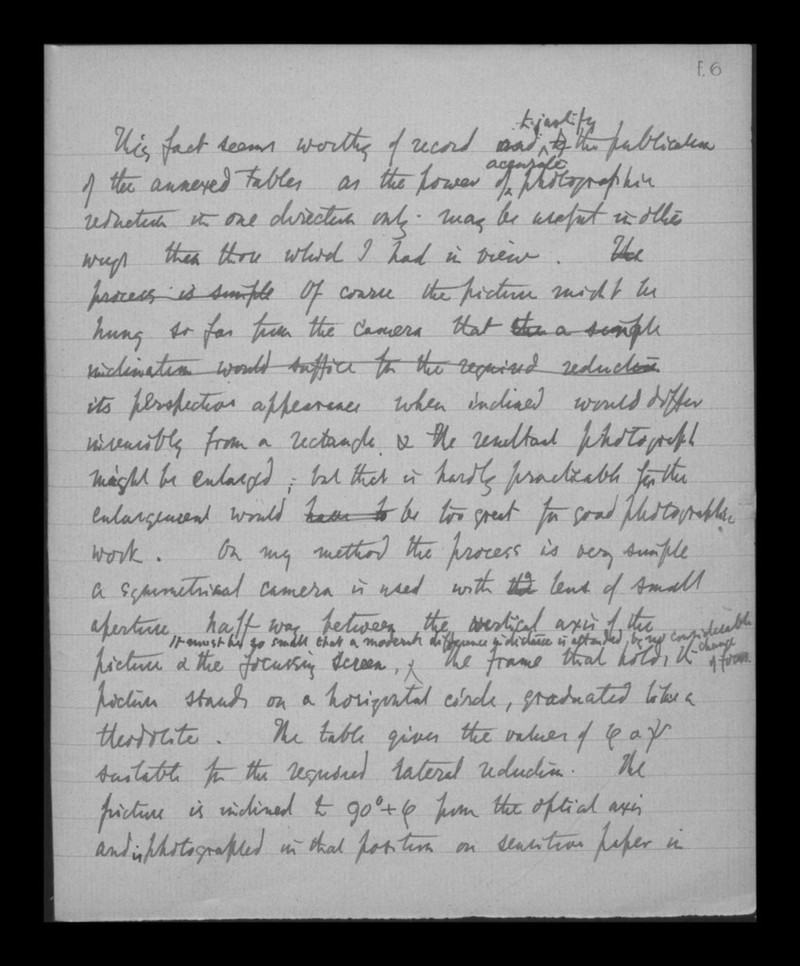 f. 6
to justify
This fact seems worthy of record and to the publication
accurate
of the annexed tables as the power of photographic
reduction in one direction only may be useful in other
ways than those which I had in view. The
process is simple Of course the picture might be
hung so far from the camera that then a simple
inclination would suffice for the required reduction
its perspective appearance when inclined would differ
insensibly from a rectangle, & the resultant photograph
might be enlarged; but that is hardly practicable for the
enlargement would have to be too great for good photographic
work. On my method the process is very simple
a symmetrical camera is used with the lens of small
aperture half way between the vertical axis of the
It must be so small that a moderate difference in distance is attained by no considerable change of focus
picture & the focussing screen, The frame that holds the
picture stands on a horizontal circle, graduated like a
theodolite. The table gives the values of φ & ψ
suitable for the required lateral reduction. The
picture is inclined to 90° + φ from the optical axis
and is photographed in that position on sensitive paper in